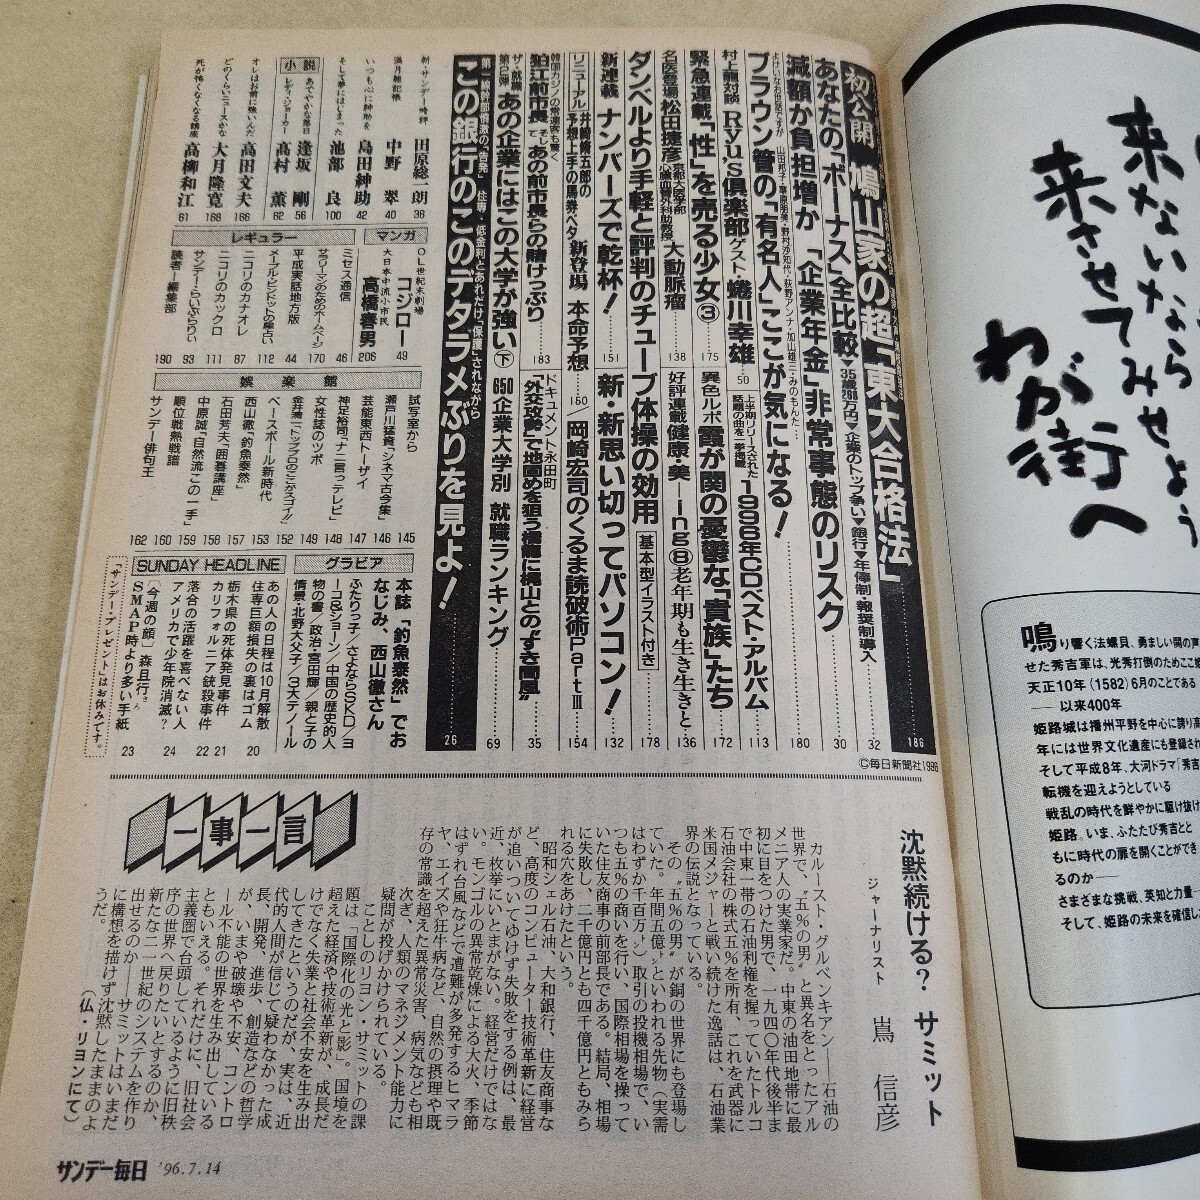 初公開 鳩山家の超「東大合格法」
186
あなたの「ボーナス」全比較
▼35歳268万円▼企業のトップ争い▼銀行▼年俸制・報奨制導入
32
減額か負担増か 「企業年金」非常事態のリスク
30
ブラウン管の「有名人」ここが気になる!
180
村上龍対談 Ryu's倶楽部 ゲスト・蜷川幸雄
50
上半期リリースされた話題の曲を一挙掲載
1996年CDベスト・アルバム
113
緊急連載「性」を売る少女③
175
異色ルポ 霞が関の憂鬱な「貴族」たち
172
名医登場 松田捷彦 京都大医学部心臓血管外科助教授 大動脈瘤
138
好評連載 健康・美―ing⑧老年期も生き生きと
136
ダンベルより手軽と評判のチューブ体操の効用 基本型イラスト付き
178
新連載 ナンバーズで乾杯!
151
新・新思い切ってパソコン!
132
リニューアル 井崎脩五郎の予想上手の馬券ベタ 新登場 本命予想
150
岡崎宏司のくるま読破術PartⅢ
154
韓国カジノの常連客も驚く
狛江前市長 そして あの前市長らの賭けっぷり
183
ドキュメント永田町
「外交攻勢」で地固めを狙う橋龍に梶山とのすき間風
35
ザ・就職 第2弾 あの企業にはこの大学が強い㊦ 650企業大学別 就職ランキング
69
第一線幹部憤激の「告発」 住専・低金利とあれだけ「保護」されながら
この銀行のこのデタラメぶりを見よ!
26
©毎日新聞社1996
新・サンデー時評 田原総一朗 38
満月雑記帳 中野 翠 40
いつも心に紳助を 島田紳助 42
そして夢にはじまった 池部 良 100
小説
あでやかな落日 逢坂 剛 56
レディ・ジョーカー 髙村 薫 62
オレはお前に強いんだ 高田文夫 166
どのくらいニュースかな 大月隆寛 168
死が怖くなくなる講座 高柳和江 61
マンガ
OL世紀末劇場 コジロー 49
大日本中流小市民 高橋春男 206
レギュラー
ミセス通信 46
サラリーマンのためのホームページ 170
平成実話地方版 44
メーブル・ビンドットの星占い 112
ニコリのカナオレ 87
ニコリのカックロ 111
サンデー・らいぶらりぃ 93
読者―編集部 190
娯楽館
試写室から 145
瀬戸川猛資「シネマ古今集」 146
芸能東西トーザイ 147
神足裕司「ナニ言っテレビ」 148
女性誌のツボ 149
金井清一「トッププロのここがスゴイ!!」 152
ベースボール新時代 153
西山徹「釣魚泰然」 156
石田芳夫「囲碁講座」 157
中原誠「自然流この一手」 158
順位戦熱戦譜 160
サンデー俳句王 162
グラビア
本誌「釣魚泰然」でおなじみ、西山徹さん
ふたりっ子/さよならSKD/ヨーコ&ショーン/中国の歴史的人物の書/政治・宮田輝/親と子の情景・北野大父子/3大テノール
SUNDAY HEADLINE
あの人の日程は10月解散
住専巨額損失の裏はゴム 20
栃木県の死体発見事件 21
カリフォルニア銃殺事件 22
落合の活躍を喜べない人
アメリカで少年院消滅? 24
〔今週の顔〕森且行さん
SMAP時より多い手紙 23
「サンデー・プレゼント」はお休みです。
一言一事
沈黙続ける? サミット
ジャーナリスト 嶌 信彦
カルースト・グルベンキアン――石油の
世界で、〝五%の男〟と異名をとったアル
メニア人の実業家だ。中東の油田地帯に最
初に目をつけた男で、一九四〇年代後半ま
で中東一帯の石油利権を握っていたトルコ
石油会社の株式五%を所有、これを武器に
米国メジャーと戦い続けた逸話は、石油業
界の伝説となっている。
その〝五%の男〟が銅の世界にも登場し
ていた。年間五億㌧といわれる先物(実需
はわずか千百万㌧)取引の投機相場で、い
つも五%の商いを行い、国際相場を操って
いた住友商事の前部長である。結局、相場
に失敗し、二千億円とも四千億円ともみら
れる穴をあけたという。
昭和シェル石油、大和銀行、住友商事な
ど、高度のコンピューター技術革新に経営
が追いついてゆけず失敗をする例は、最
近、枚挙にいとまがない。経営だけではな
い。モンゴルの異常乾燥による大火、季節
はずれ台風などで遭難が多発するヒマラ
ヤ、エイズや狂牛病など、自然の摂理や既
存の常識を超えた異常災害、病気なども相
次ぎ、人類のマネジメント能力に
疑問が投げかけられている。
ことしのリヨン・サミットの課
題は「国際化の光と影」。国境を
超えた経済や技術革新が、成長だ
けでなく失業と社会不安を生み出
してきたというのだが、実は、近
代的人間が信じて疑わなかった成
長、開発、進歩、創造などの哲学
が、いまや破壊や不安、コントロ
ール不能の世界を生み出している
ともいえる。それだけに、旧社会
主義圏で台頭しているように旧秩
序の世界へ戻りたいとするのか、
新たな二一世紀のシステムを作り
出せるのか――サミットはいまだ
に構想を描けず沈黙したままのよ
うだ。
(仏・リヨンにて)
サンデー毎日 '96.7.14
来ないなら
来させてみせよう
わが街へ
鳴り響く法螺貝、勇ましい閧の声
せた秀吉軍は、光秀打倒のためここ姫
天正10年(1582)6月のことである
――以来400年
姫路城は播州平野を中心に誇り高
年には世界文化遺産にも登録され
そして平成8年、大河ドラマ「秀吉
転機を迎えようとしている
戦乱の時代を鮮やかに駆け抜け
姫路。いま、ふたたび秀吉と
もに時代の扉を開くことができ
るのか――
さまざまな挑戦、英知と力量―
そして、姫路の未来を確信し